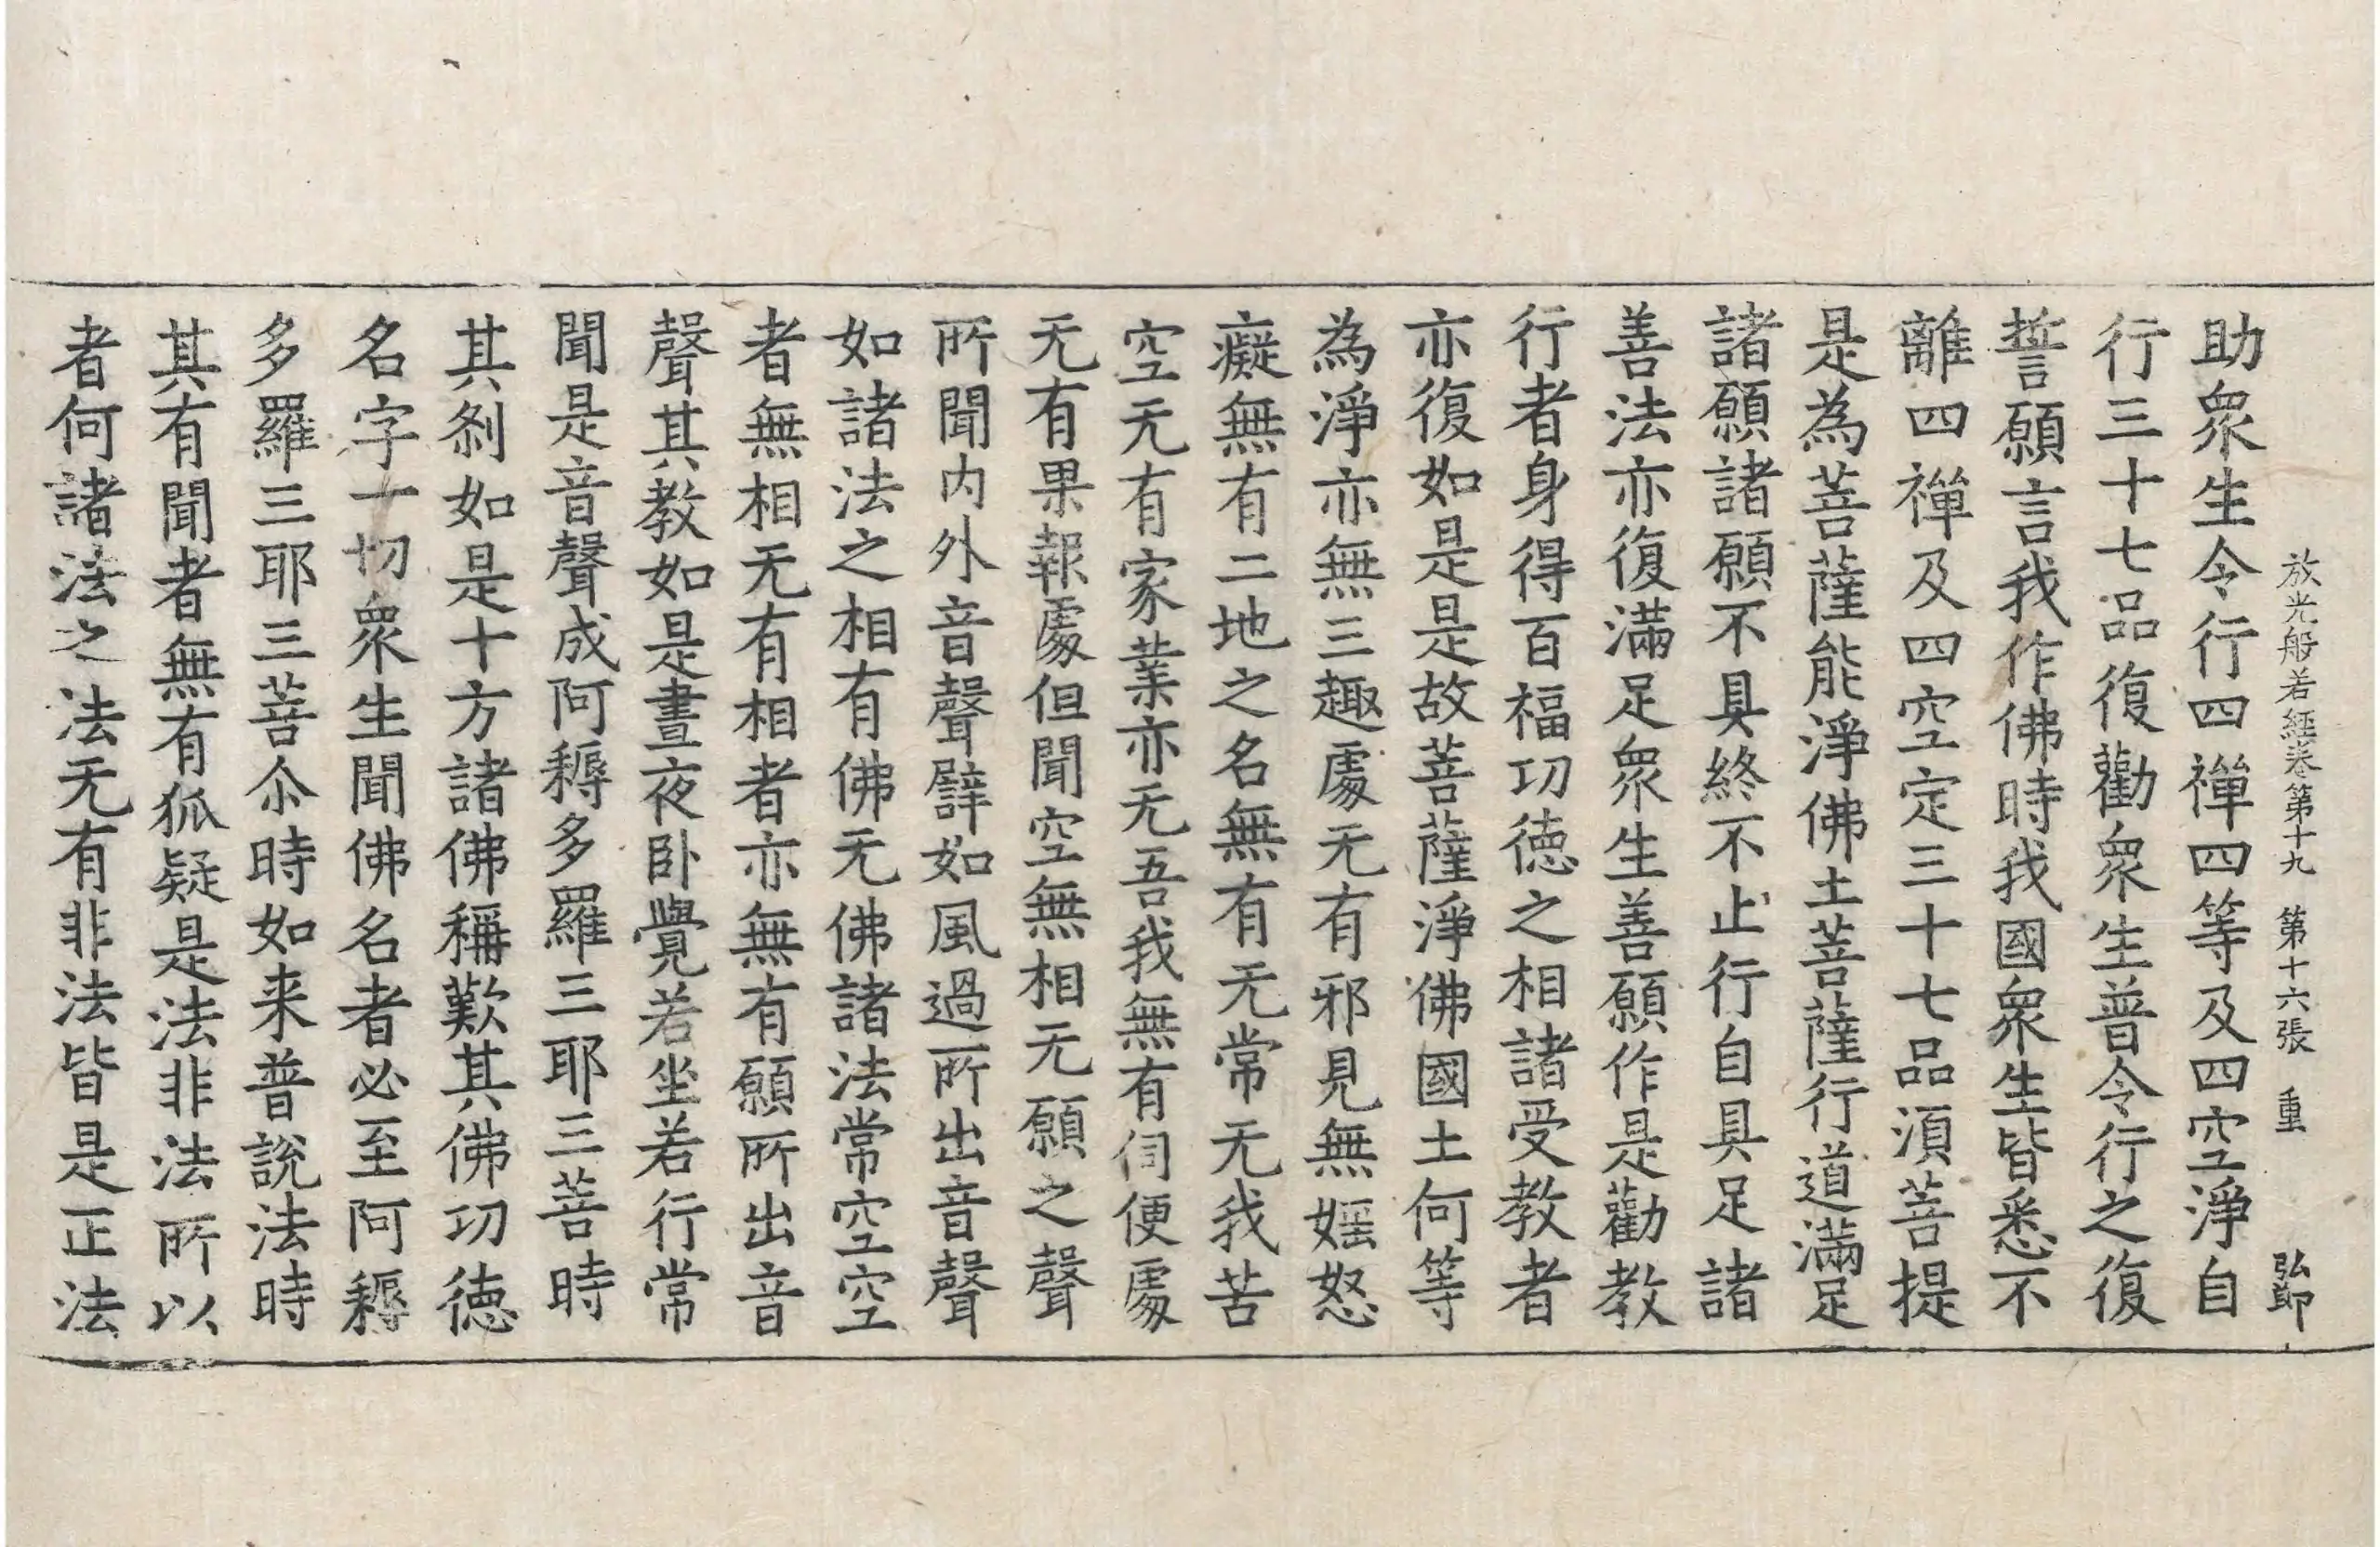 放光般若經卷第十九 第十六張 重 弘節
助衆生令行四禪四等及四空淨自
行三十七品復勸衆生普令行之復
誓願言我作佛時我國衆生皆悉不
離四禪及四空定三十七品湏菩提
是為菩薩能淨佛土菩薩行道滿足
諸願諸願不具終不止行自具足諸
善法亦復滿足衆生善願作是勸教
行者身得百福㓛德之相諸受教者
亦復如是是故菩薩淨佛國土何等
為淨亦無三趣處无有邪見無婬怒
癡無有二地之名無有无常无我苦
空无有家業亦无吾我無有伺便處
无有果報處但聞空無相无願之聲
所聞内外音聲譬如風過所出音聲
如諸法之相有佛无佛諸法常空空
者無相无有相者亦無有願所出音
聲其教如是晝夜卧覺若坐若行常
聞是音聲成阿耨多羅三耶三菩時
其刹如是十方諸佛稱歎其佛㓛德
名字一切衆生聞佛名者必至阿耨
多羅三耶三菩尒時如来普說法時
其有聞者無有狐疑是法非法所以
者何諸法之法无有非法皆是正法